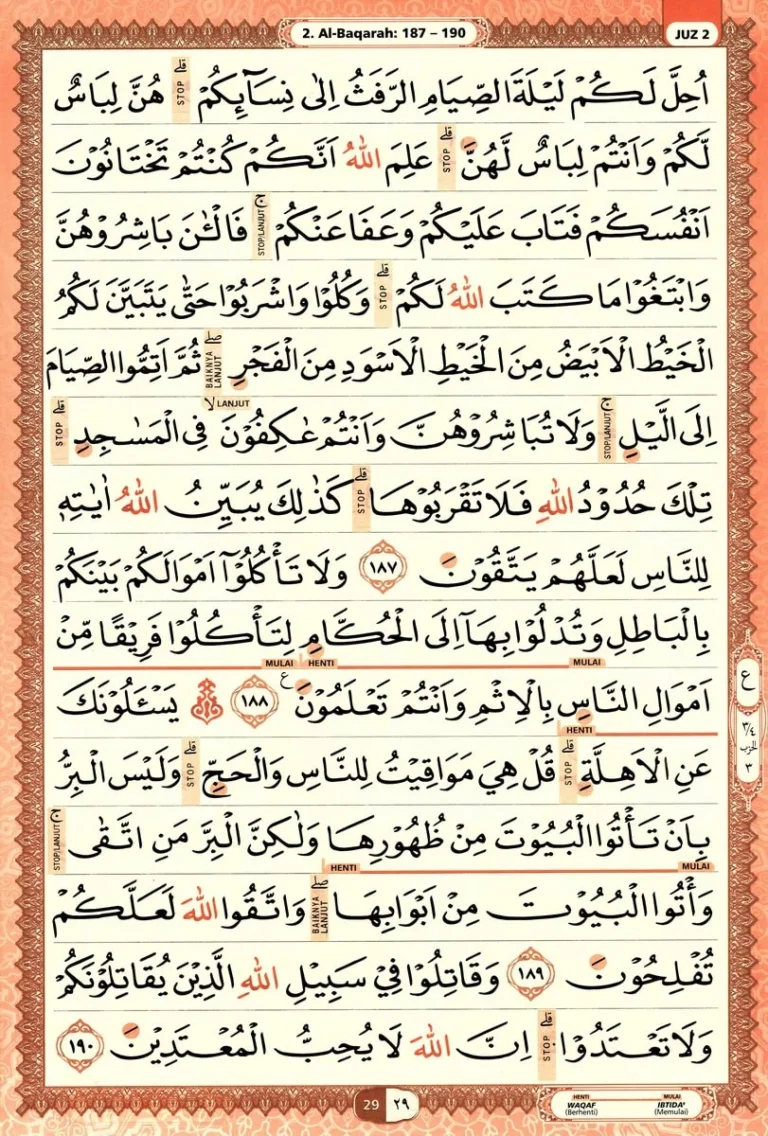 2. Al-Baqarah: 187 – 190
JUZ 2
اُحِلَّ لَكُمْ لَيْلَةَ الصِّيَامِ الرَّفَثُ اِلٰى نِسَاۤىِٕكُمْ ۗ STOP هُنَّ لِبَاسٌ
لَّكُمْ وَاَنْتُمْ لِبَاسٌ لَّهُنَّ ۗ STOP عَلِمَ اللّٰهُ اَنَّكُمْ كُنْتُمْ تَخْتَانُوْنَ
اَنْفُسَكُمْ فَتَابَ عَلَيْكُمْ وَعَفَا عَنْكُمْ ۚ STOP/LANJUT فَالْـٰٔنَ بَاشِرُوْهُنَّ
وَابْتَغُوْا مَا كَتَبَ اللّٰهُ لَكُمْ ۗ STOP وَكُلُوْا وَاشْرَبُوْا حَتّٰى يَتَبَيَّنَ لَكُمُ
الْخَيْطُ الْاَبْيَضُ مِنَ الْخَيْطِ الْاَسْوَدِ مِنَ الْفَجْرِۖ BAIKNYA LANJUT ثُمَّ اَتِمُّوا الصِّيَامَ
اِلَى الَّيْلِۚ STOP/LANJUT وَلَا تُبَاشِرُوْهُنَّ وَاَنْتُمْ عٰكِفُوْنَۙ LANJUT فِى الْمَسٰجِدِۗ STOP
تِلْكَ حُدُوْدُ اللّٰهِ فَلَا تَقْرَبُوْهَاۗ STOP كَذٰلِكَ يُبَيِّنُ اللّٰهُ اٰيٰتِهٖ
لِلنَّاسِ لَعَلَّهُمْ يَتَّقُوْنَ ١٨٧ وَلَا تَأْكُلُوْٓا اَمْوَالَكُمْ بَيْنَكُمْ
بِالْبَاطِلِ وَتُدْلُوْا بِهَآ اِلَى الْحُكَّامِ لِتَأْكُلُوْا فَرِيْقًا مِّنْ
MULAI HENTI MULAI
اَمْوَالِ النَّاسِ بِالْاِثْمِ وَاَنْتُمْ تَعْلَمُوْنَ ع ١٨٨ يَسْـَٔلُوْنَكَ
HENTI
عَنِ الْاَهِلَّةِ ۗ STOP قُلْ هِيَ مَوَاقِيْتُ لِلنَّاسِ وَالْحَجِّ ۗ STOP وَلَيْسَ الْبِرُّ
بِاَنْ تَأْتُوا الْبُيُوْتَ مِنْ ظُهُوْرِهَا وَلٰكِنَّ الْبِرَّ مَنِ اتَّقٰىۚ STOP/LANJUT
HENTI MULAI
وَأْتُوا الْبُيُوْتَ مِنْ اَبْوَابِهَا ۖ BAIKNYA LANJUT وَاتَّقُوا اللّٰهَ لَعَلَّكُمْ
تُفْلِحُوْنَ ١٨٩ وَقَاتِلُوْا فِيْ سَبِيْلِ اللّٰهِ الَّذِيْنَ يُقَاتِلُوْنَكُمْ
وَلَا تَعْتَدُوْاۗ STOP اِنَّ اللّٰهَ لَا يُحِبُّ الْمُعْتَدِيْنَ ١٩٠
ع
٣/٤
الحزب
٣
29 ٢٩
HENTI MULAI
WAQAF IBTIDA'
(Berhenti) (Memulai)